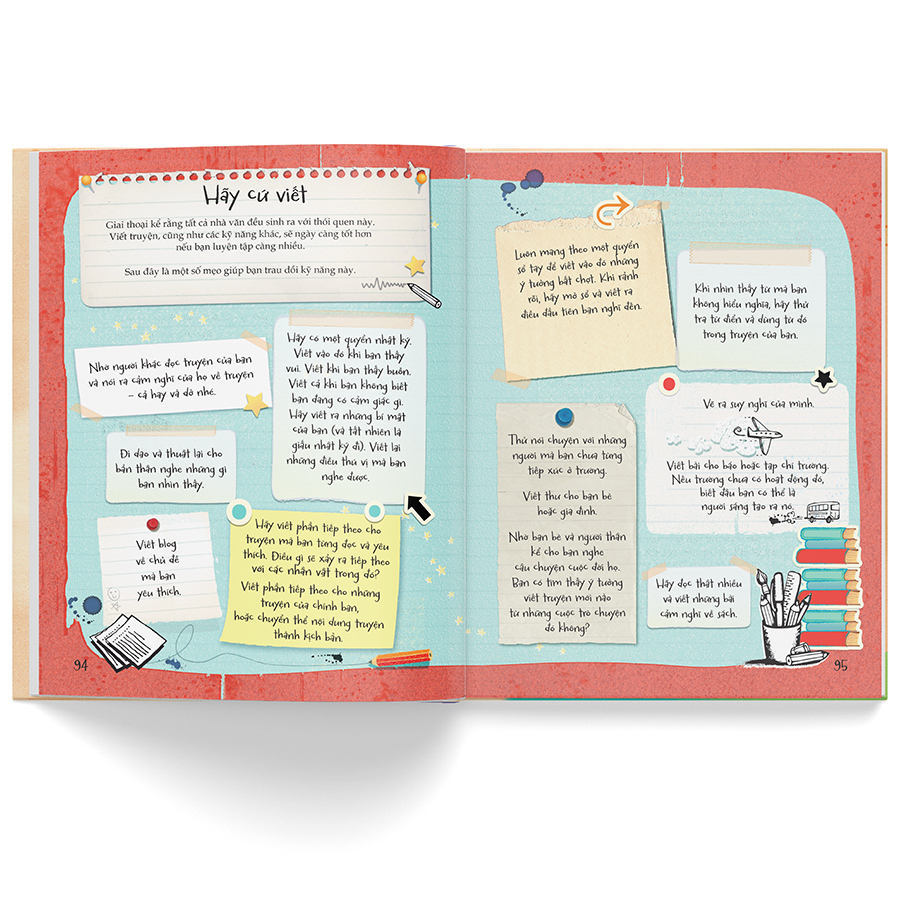 Hãy cứ viết
Giai thoại kể rằng tất cả nhà văn đều sinh ra với thói quen này.
Viết truyện, cũng như các kỹ năng khác, sẽ ngày càng tốt hơn
nếu bạn luyện tập càng nhiều.
Sau đây là một số mẹo giúp bạn trau dồi kỹ năng này.
Nhờ người khác đọc truyện của bạn
và nói ra cảm nghĩ của họ về truyện
– cả hay và dở nhé.
Hãy có một quyển nhật ký.
Viết vào đó khi bạn thấy
vui. Viết khi bạn thấy buồn.
Viết cả khi bạn không biết
bạn đang có cảm giác gì.
Hãy viết ra những bí mật
của bạn (và tất nhiên là
giấu nhật ký đi). Viết lại
những điều thú vị mà bạn
nghe được.
Đi dạo và thuật lại cho
bản thân nghe những gì
bạn nhìn thấy.
Viết blog
về chủ đề
mà bạn
yêu thích.
Hãy viết phần tiếp theo cho
truyện mà bạn từng đọc và yêu
thích. Điều gì sẽ xảy ra tiếp theo
với các nhân vật trong đó?
Viết phần tiếp theo cho những
truyện của chính bạn,
hoặc chuyển thể nội dung truyện
thành kịch bản.
94
Luôn mang theo một quyển
sổ tay để viết vào đó những
ý tưởng bất chợt. Khi rảnh
rỗi, hãy mở sổ và viết ra
điều đầu tiên bạn nghĩ đến.
Khi nhìn thấy từ mà bạn
không hiểu nghĩa, hãy thử
tra từ điển và dùng từ đó
trong truyện của bạn.
Thử nói chuyện với những
người mà bạn chưa từng
tiếp xúc ở trường.
Viết thư cho bạn bè
hoặc gia đình.
Nhờ bạn bè và người thân
kể cho bạn nghe
câu chuyện cuộc đời họ.
Bạn có tìm thấy ý tưởng
viết truyện mới nào
từ những cuộc trò chuyện
đó không?
Vẽ ra suy nghĩ của mình.
Viết bài cho báo hoặc tạp chí trường.
Nếu trường chưa có hoạt động đó,
biết đâu bạn có thể là
người sáng tạo ra nó.
Hãy đọc thật nhiều
và viết những bài
cảm nghĩ về sách.
95